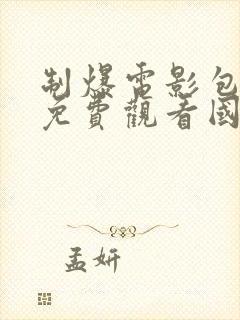 制爆電影包
免費觀看國
孟妍